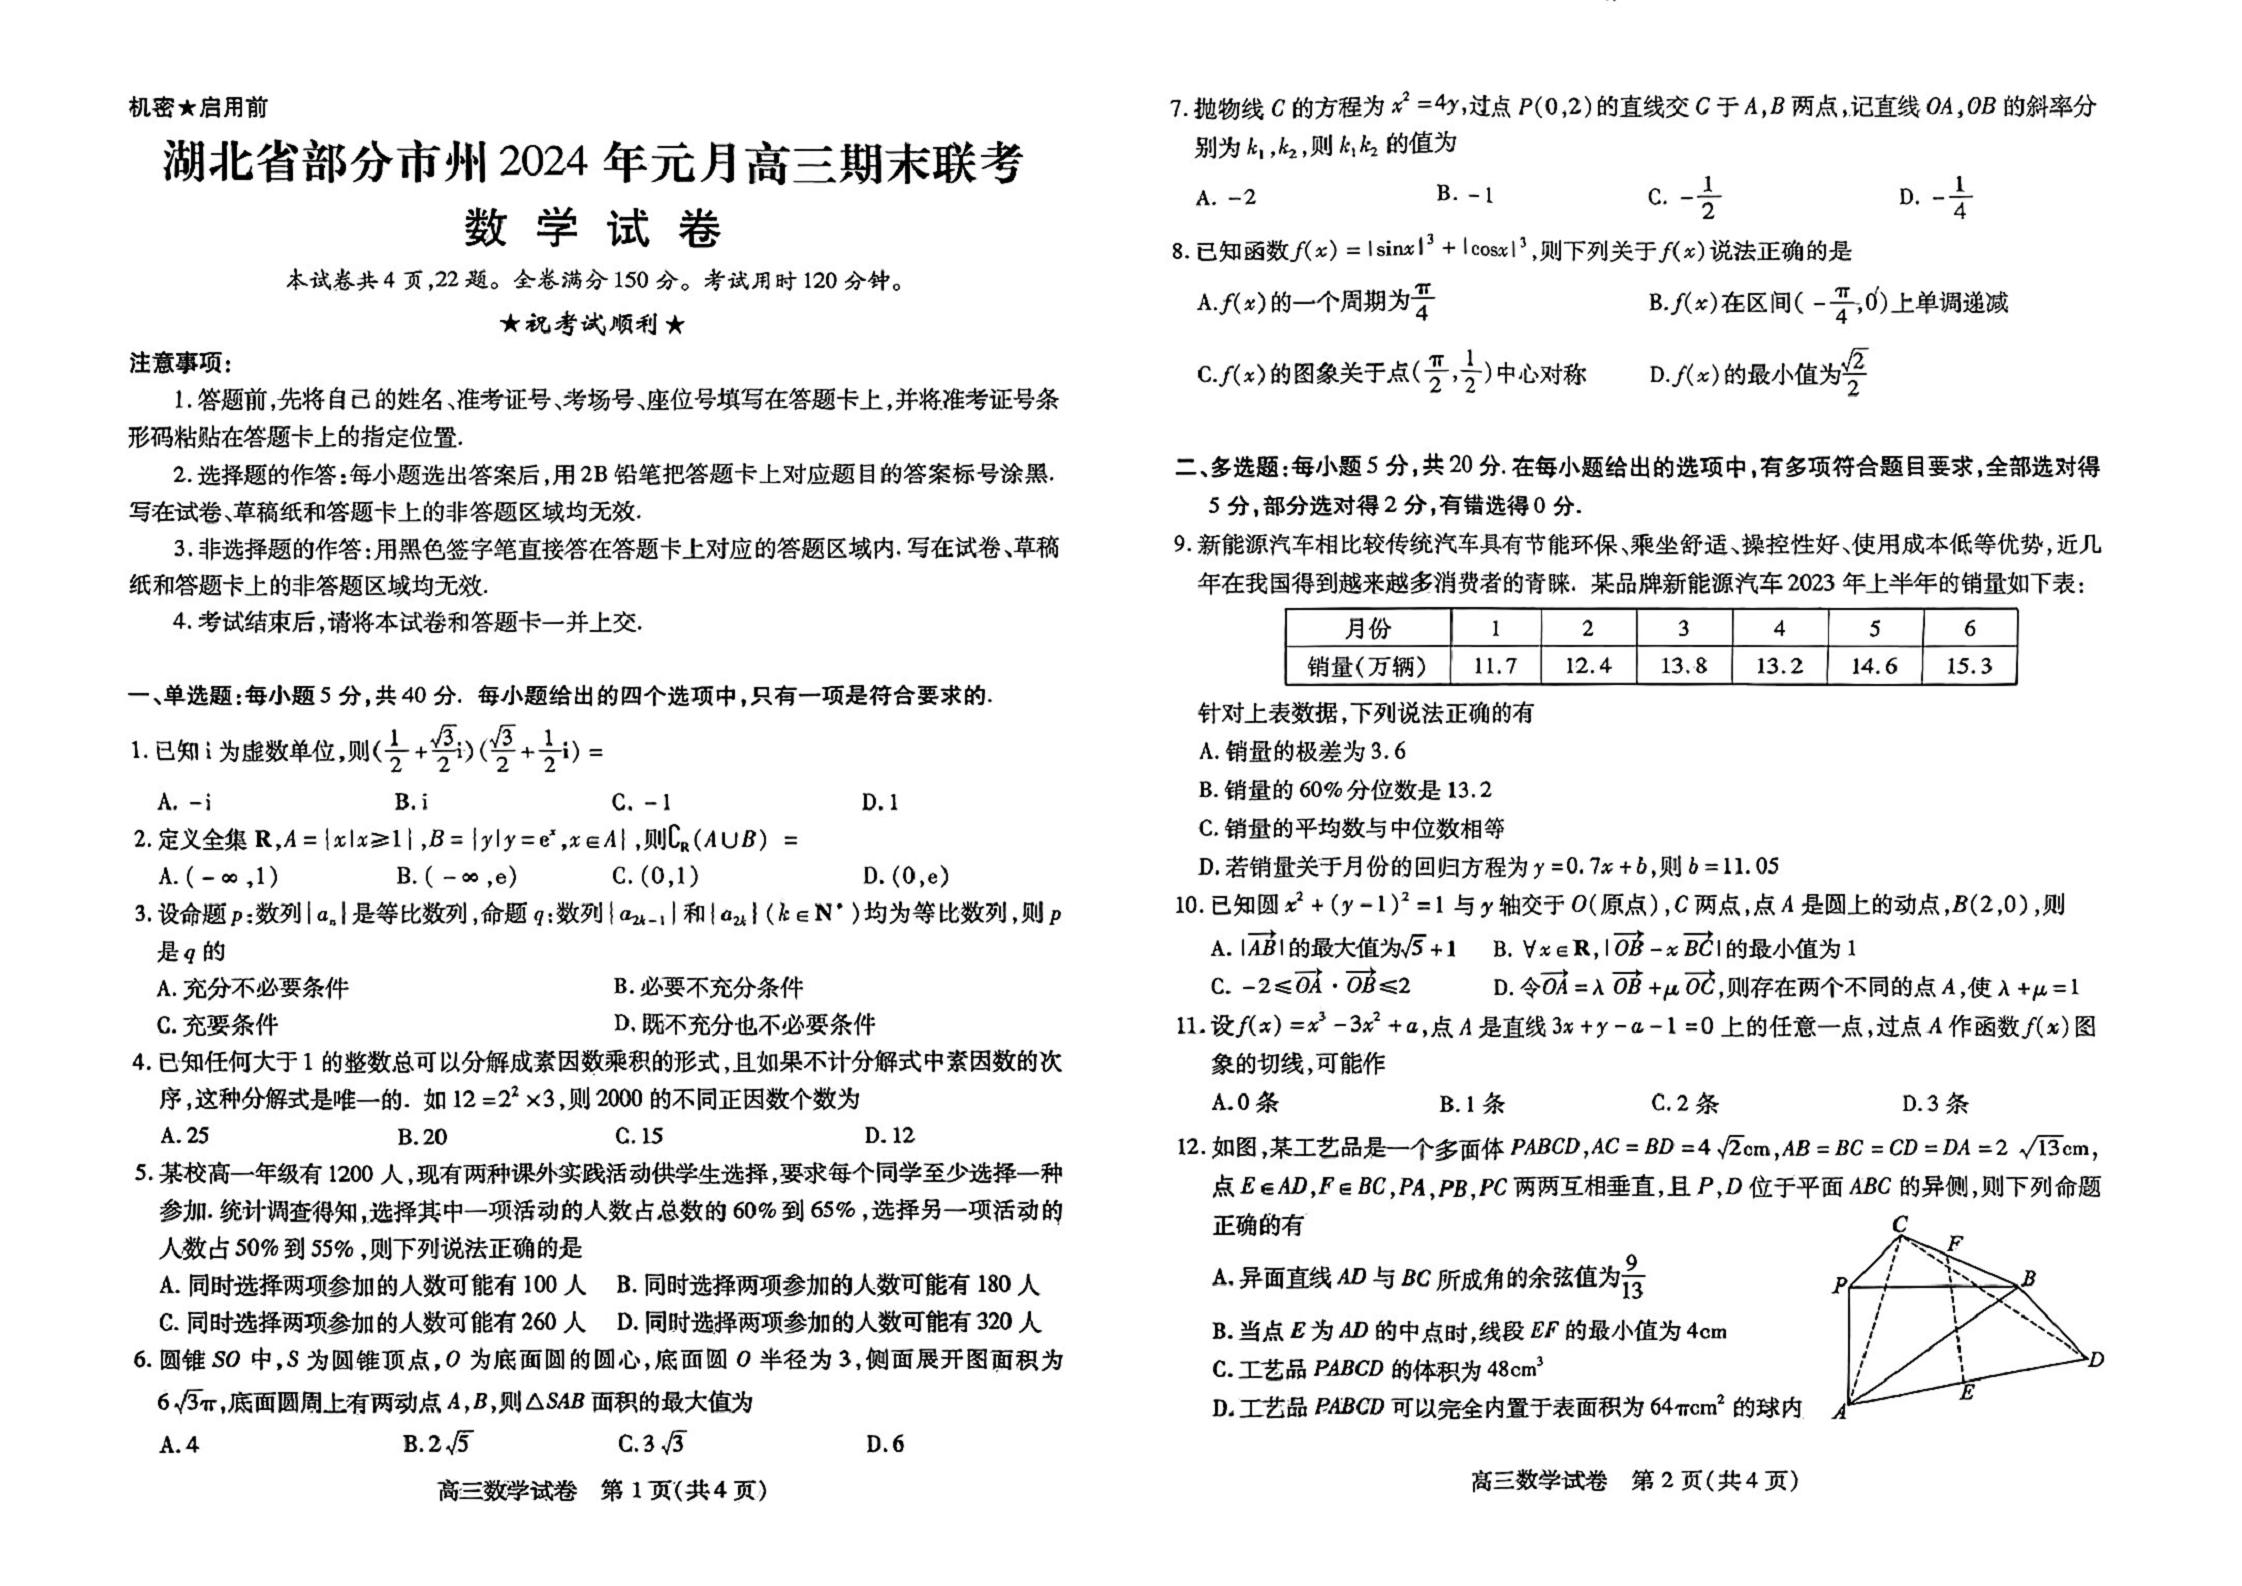 机密★启用前
湖北省部分市州2024年元月高三期末联考
数学试卷
本试卷共4页,22题。全卷满分150分。考试用时120分钟。
★祝考试顺利★
注意事项:
1.答题前,先将自己的姓名、准考证号、考场号、座位号填写在答题卡上,并将准考证号条
形码粘贴在答题卡上的指定位置.
2.选择题的作答:每小题选出答案后,用2B铅笔把答题卡上对应题目的答案标号涂黑.
写在试卷、草稿纸和答题卡上的非答题区域均无效.
3.非选择题的作答:用黑色签字笔直接答在答题卡上对应的答题区域内.写在试卷、草稿
纸和答题卡上的非答题区域均无效.
4.考试结束后,请将本试卷和答题卡一并上交.
一、单选题:每小题5分,共40分. 每小题给出的四个选项中,只有一项是符合要求的.
1.已知i为虚数单位,则(1/2+√3/2 i)(√3/2+1/2 i)=
A. -i B. i C. -1 D. 1
2.定义全集R,A={x|x≥1},B={y|y=eˣ,x∈A},则∁R(A∪B) =
A.(-∞,1) B.(-∞,e) C.(0,1) D.(0,e)
3.设命题p:数列{aₙ}是等比数列,命题q:数列{a₂ₖ₋₁}和{a₂ₖ}(k∈N*)均为等比数列,则p
是q的
A.充分不必要条件 B.必要不充分条件
C.充要条件 D.既不充分也不必要条件
4.已知任何大于1的整数总可以分解成素因数乘积的形式,且如果不计分解式中素因数的次
序,这种分解式是唯一的. 如12=2²×3,则2000的不同正因数个数为
A.25 B.20 C.15 D.12
5.某校高一年级有1200人,现有两种课外实践活动供学生选择,要求每个同学至少选择一种
参加.统计调查得知,选择其中一项活动的人数占总数的60%到65%,选择另一项活动的
人数占50%到55%,则下列说法正确的是
A.同时选择两项参加的人数可能有100人 B.同时选择两项参加的人数可能有180人
C.同时选择两项参加的人数可能有260人 D.同时选择两项参加的人数可能有320人
6.圆锥SO中,S为圆锥顶点,O为底面圆的圆心,底面圆O半径为3,侧面展开图面积为
6√3π,底面圆周上有两动点A,B,则△SAB面积的最大值为
A.4 B.2√5 C.3√3 D.6
高三数学试卷 第1页(共4页)
7.抛物线C的方程为x²=4y,过点P(0,2)的直线交C于A,B两点,记直线OA,OB的斜率分
别为k₁,k₂,则k₁k₂的值为
A. -2 B. -1 C. -1/2 D. -1/4
8.已知函数f(x)=|sinx|³+|cosx|³,则下列关于f(x)说法正确的是
A.f(x)的一个周期为π/4 B.f(x)在区间(-π/4,0)上单调递减
C.f(x)的图象关于点(π/2,1/2)中心对称 D.f(x)的最小值为√2/2
二、多选题:每小题5分,共20分.在每小题给出的选项中,有多项符合题目要求,全部选对得
5分,部分选对得2分,有错选得0分.
9.新能源汽车相比较传统汽车具有节能环保、乘坐舒适、操控性好、使用成本低等优势,近几
年在我国得到越来越多消费者的青睐. 某品牌新能源汽车2023年上半年的销量如下表:
月份 1 2 3 4 5 6
销量(万辆) 11.7 12.4 13.8 13.2 14.6 15.3
针对上表数据,下列说法正确的有
A.销量的极差为3.6
B.销量的60%分位数是13.2
C.销量的平均数与中位数相等
D.若销量关于月份的回归方程为y=0.7x+b,则b=11.05
10.已知圆x²+(y-1)²=1与y轴交于O(原点),C两点,点A是圆上的动点,B(2,0),则
A.|AB→|的最大值为√5+1 B. ∀x∈R,|OB→-xBC→|的最小值为1
C. -2≤OA→·OB→≤2 D.令OA→=λOB→+μOC→,则存在两个不同的点A,使λ+μ=1
11.设f(x)=x³-3x²+a,点A是直线3x+y-a-1=0上的任意一点,过点A作函数f(x)图
象的切线,可能作
A.0条 B.1条 C.2条 D.3条
12.如图,某工艺品是一个多面体PABCD,AC=BD=4√2cm,AB=BC=CD=DA=2√13cm,
点E∈AD,F∈BC,PA,PB,PC两两互相垂直,且P,D位于平面ABC的异侧,则下列命题
正确的有
A.异面直线AD与BC所成角的余弦值为9/13
B.当点E为AD的中点时,线段EF的最小值为4cm
C.工艺品PABCD的体积为48cm³
D.工艺品PABCD可以完全内置于表面积为64πcm²的球内
C
F
P
B
D
E
A
高三数学试卷 第2页(共4页)